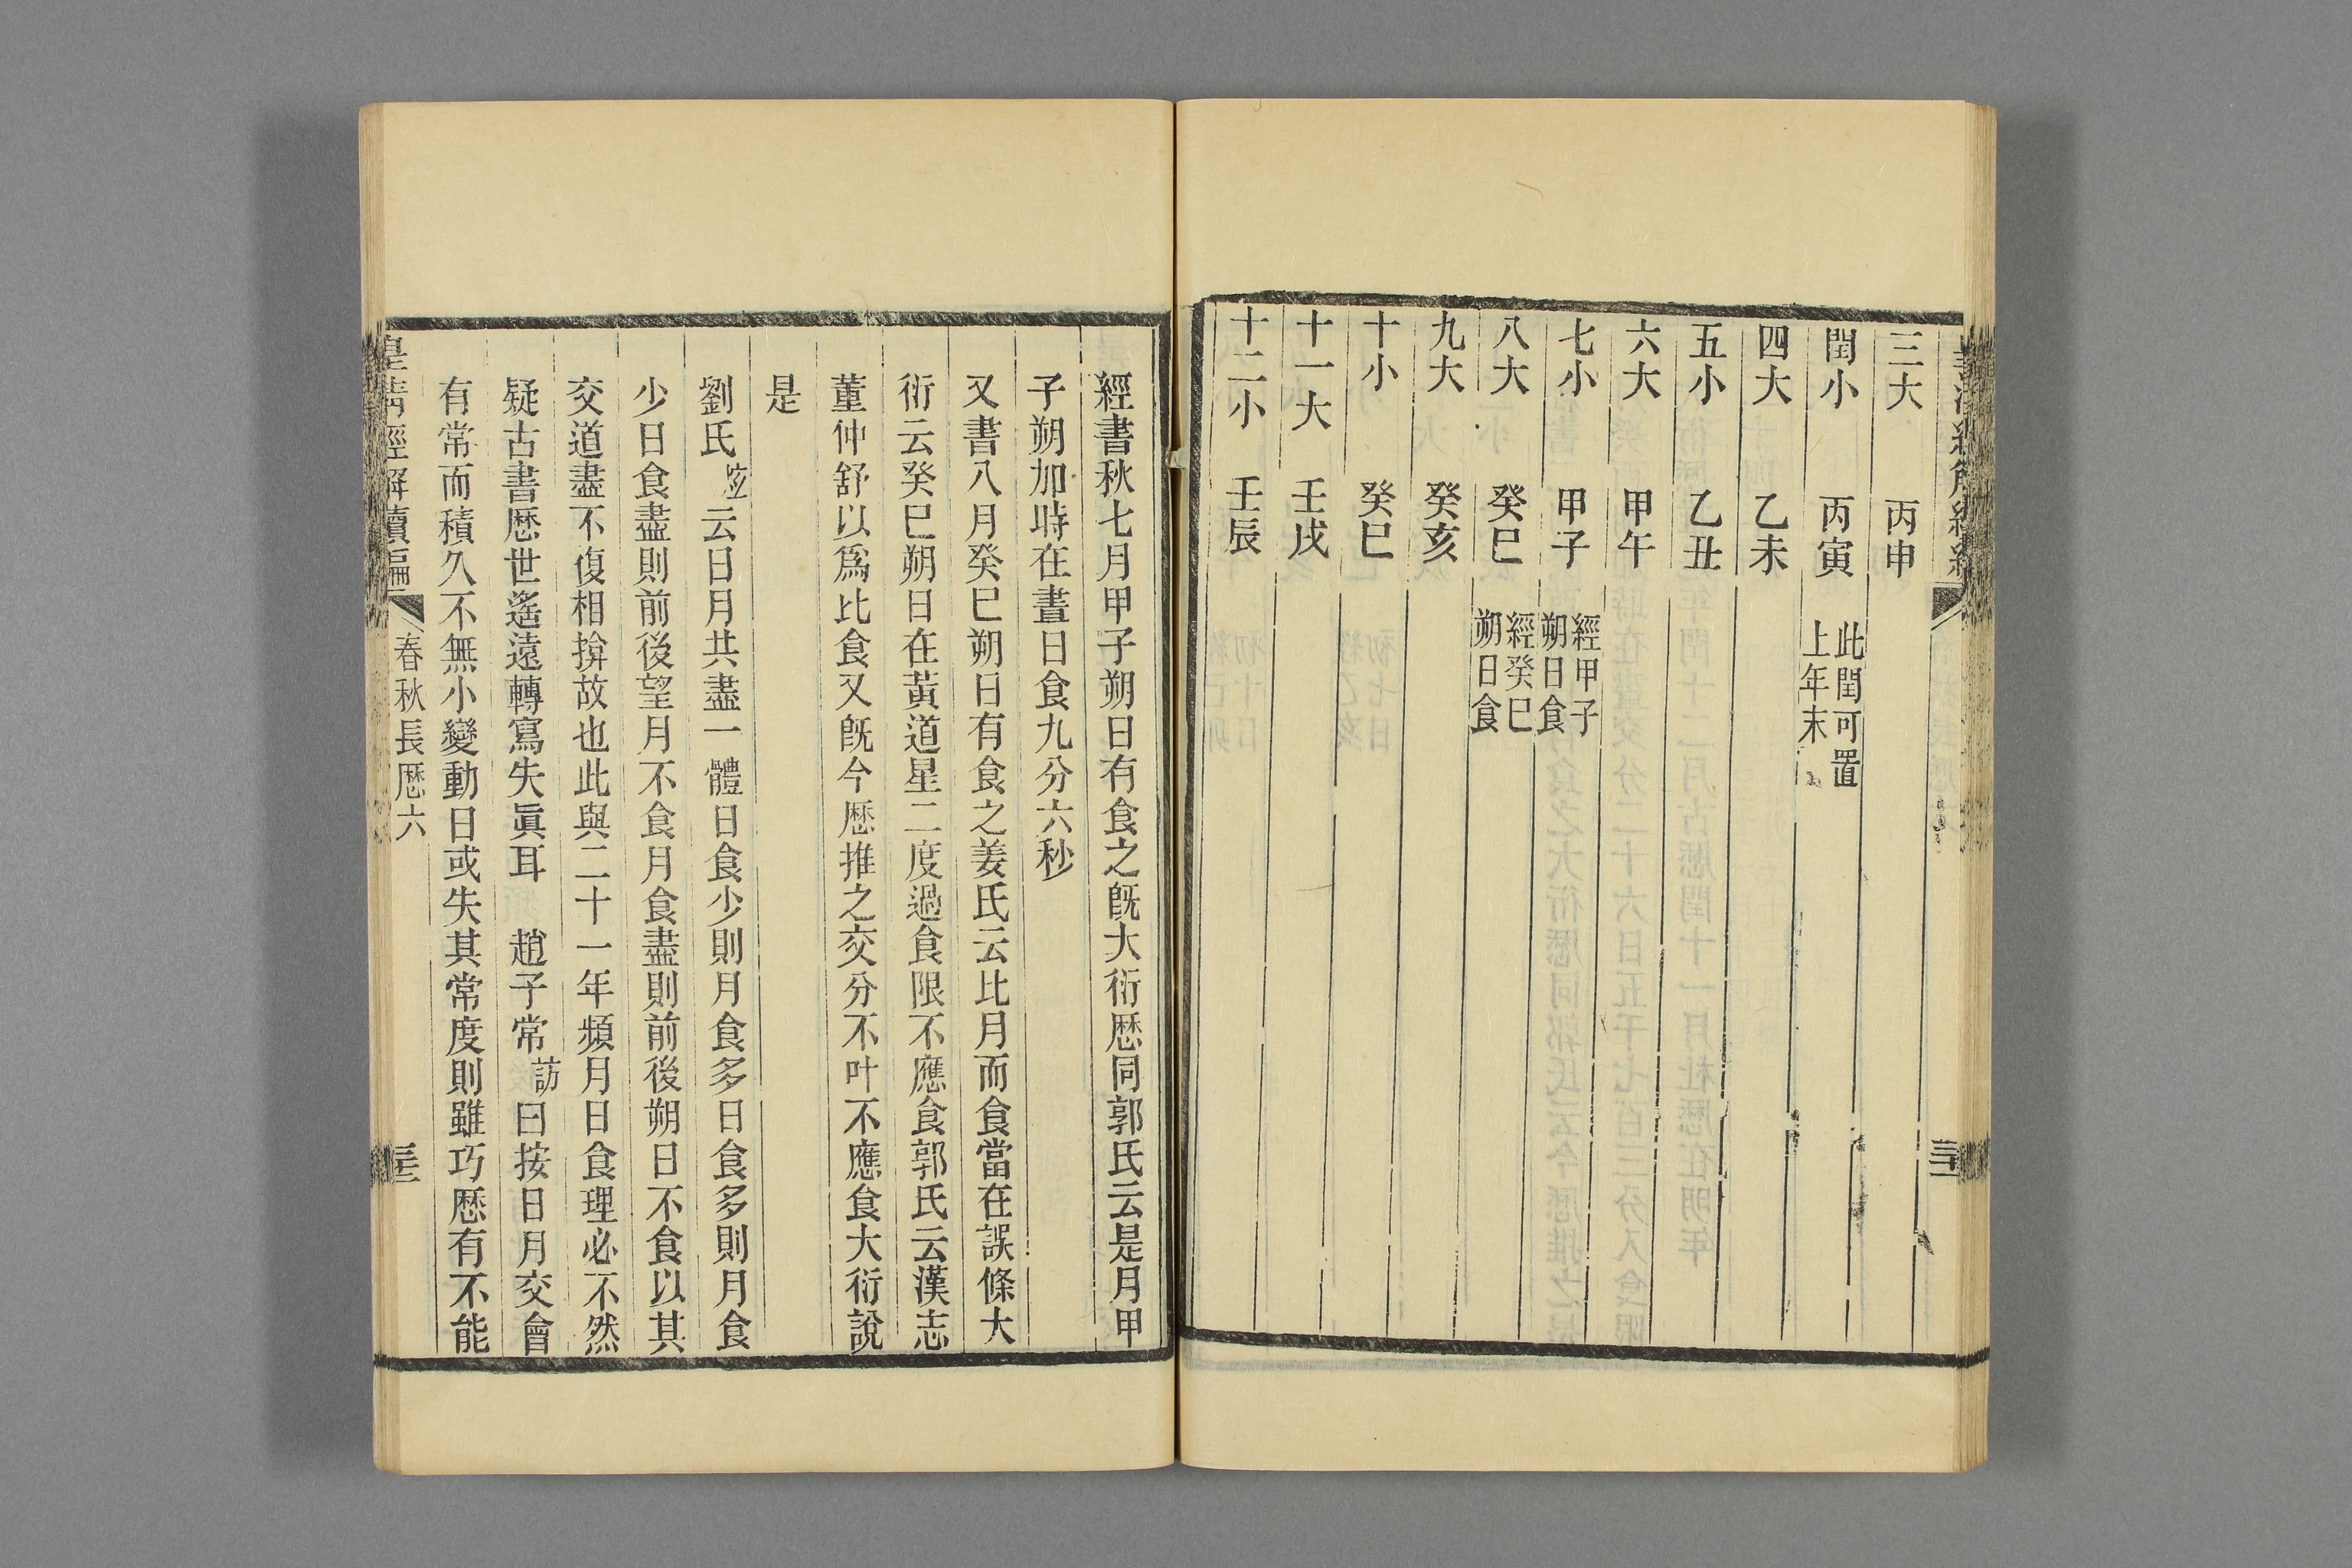 三大 丙申
閏小 丙寅 此閏可置上年末
四大 乙未
五小 乙丑
六大 甲午
七小 甲子 經甲子朔日食
八大 癸巳 經癸巳朔日食
九大 癸亥
十小 癸巳
十一大 壬戌
十二小 壬辰
經書秋七月甲子朔日有食之旣大衍厯同郭氏云是月甲
子朔加時在晝日食九分六秒
又書八月癸巳朔日有食之姜氏云比月而食當在誤條大
衍云癸巳朔日在黃道星二度過食限不應食郭氏云漢志
董仲舒以爲比食又旣今厯推之交分不叶不應食大衍說
是
劉氏炫云日月共盡一體日食少則月食多日食多則月食
少日食盡則前後望月不食月食盡則前後朔日不食以其
交道盡不復相揜故也此與二十一年頻月日食理必不然
疑古書厯世遙遠轉寫失眞耳 趙子常訪曰按日月交會
有常而積久不無小變動日或失其常度則雖巧厯有不能
皇淸經解續編 春秋長厯六